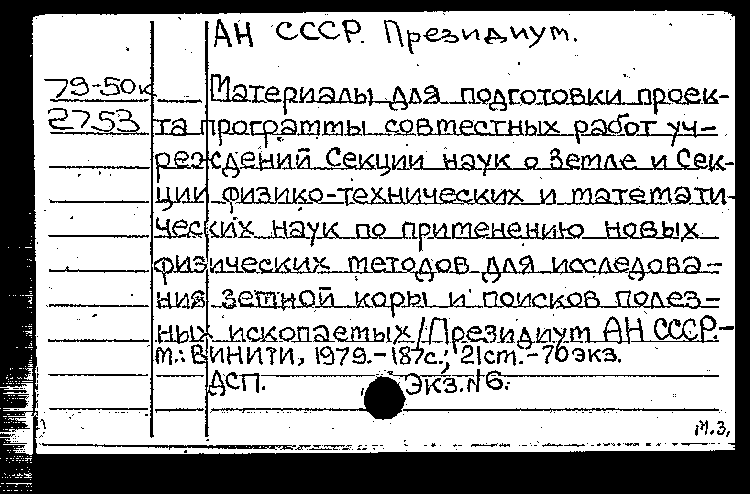 АН СССР. Президиум.
79-50к Материалы для подготовки проек-
2753 та программы совместных работ уч-
реждений Секции наук о Земле и Сек-
ции физико-технических и математи-
ческих наук по применению новых
физических методов для исследова-
ния земной коры и поисков полез-
ных ископаемых/Президиум АН СССР.-
М.: ВИНИТИ, 1979.-187с.; 21см.-70экз.
ДСП. Экз.№6.
М.З.